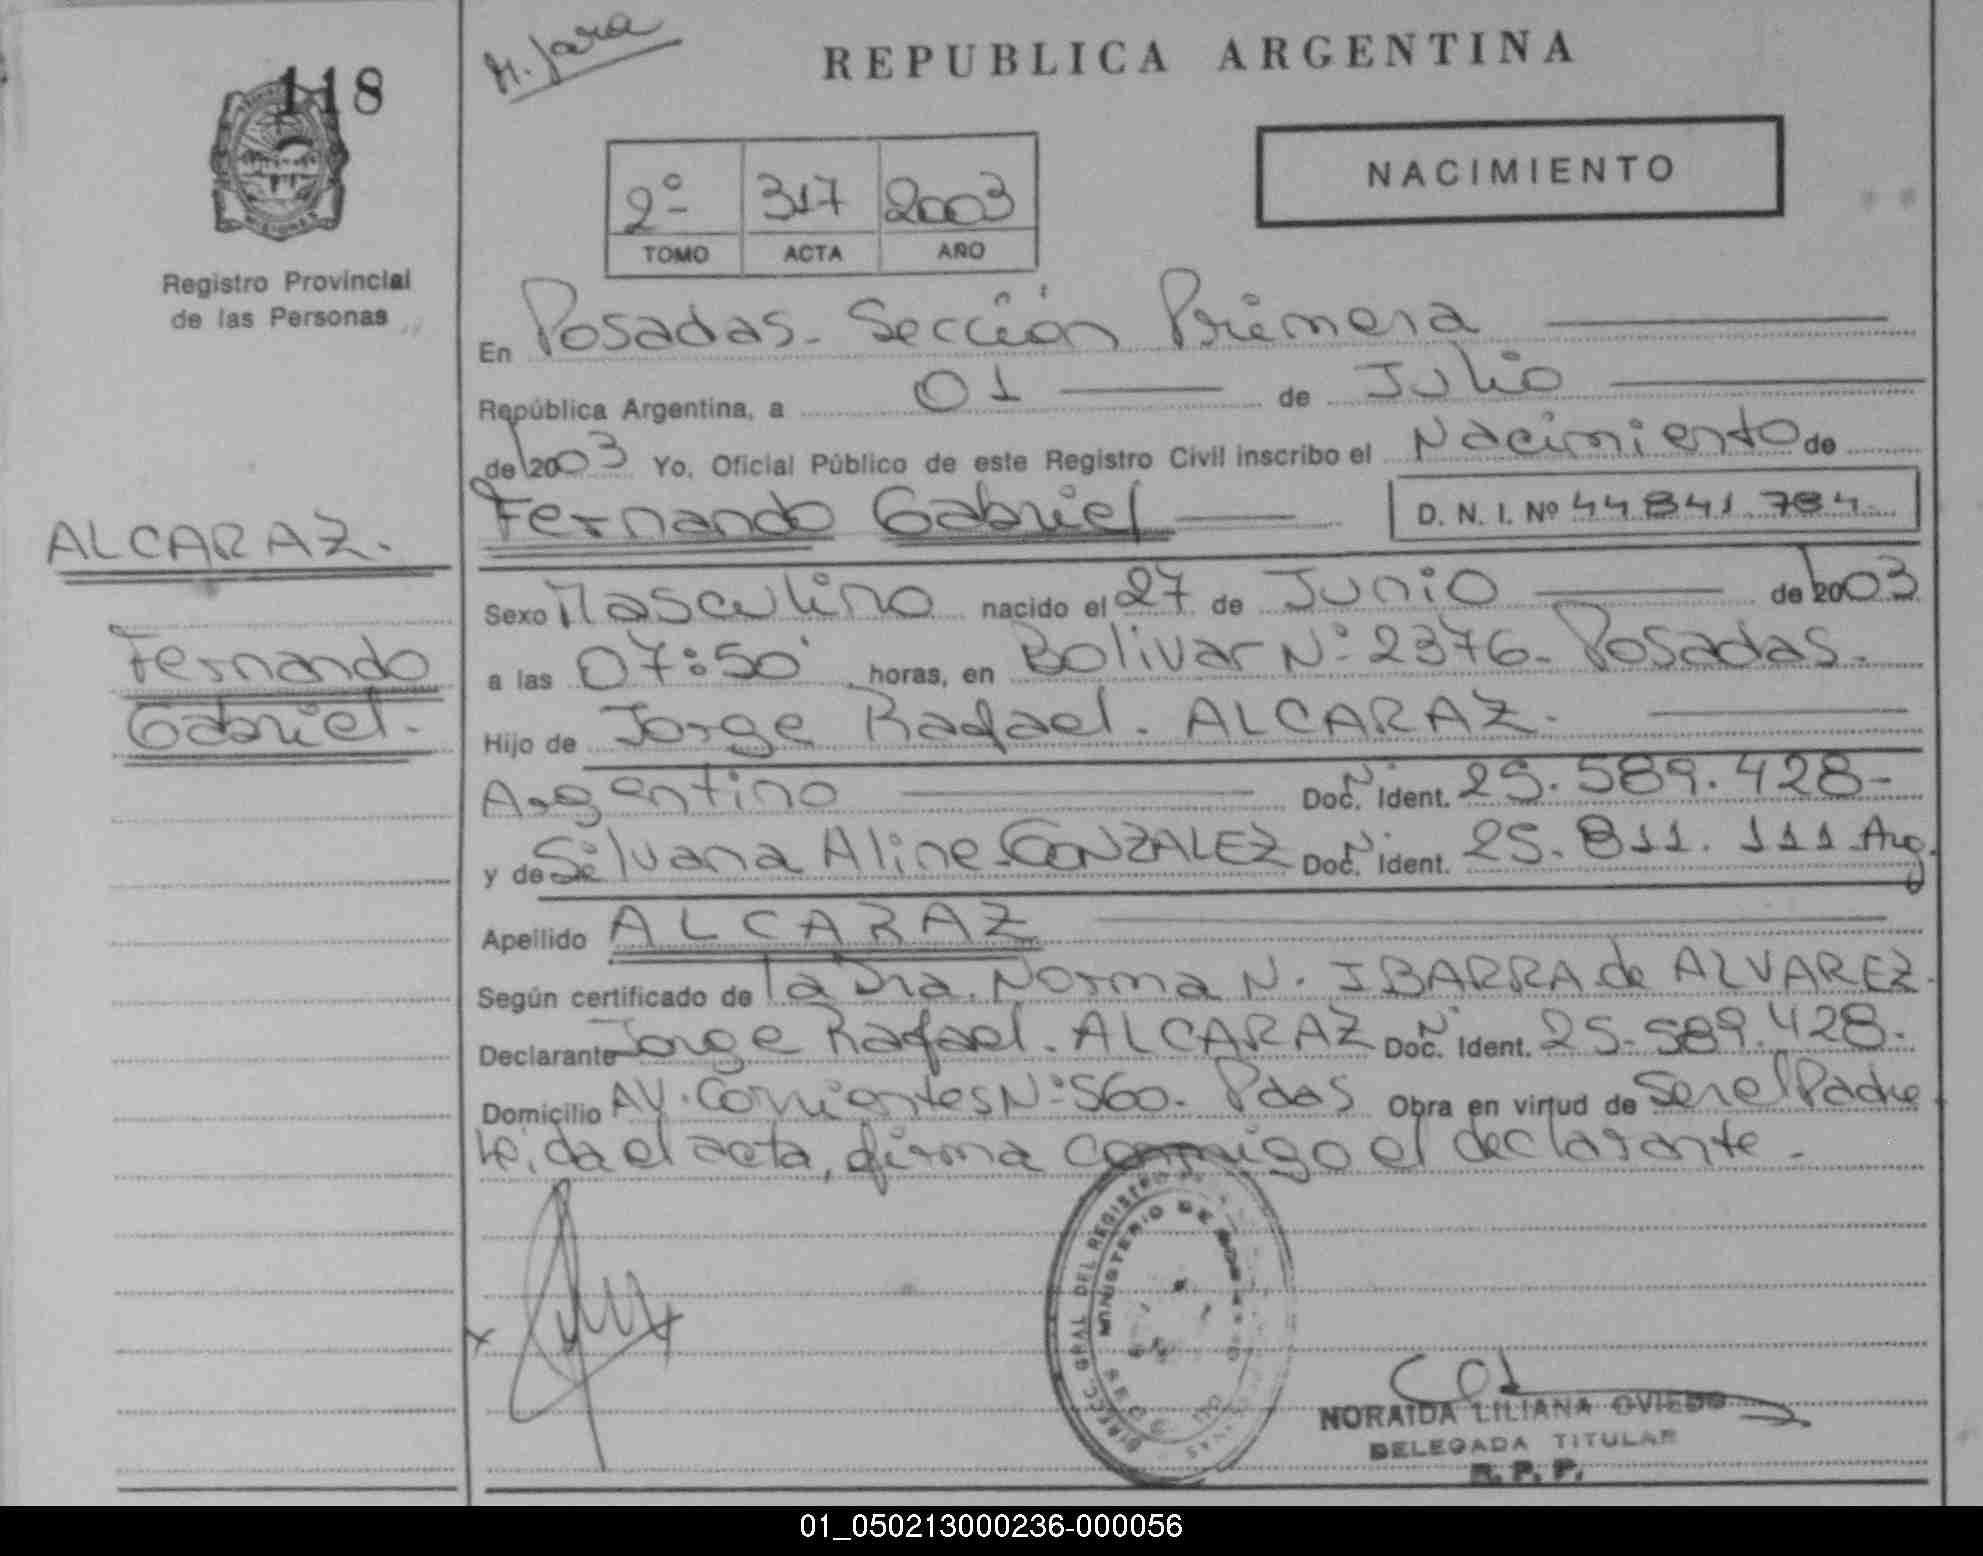 118
Registro Provincial
de las Personas
ALCARAZ.
Fernando
Gabriel.
M. Jara
REPUBLICA ARGENTINA
2º 317 2003
TOMO ACTA AÑO
NACIMIENTO
En Posadas - Sección Primera
República Argentina, a 01 de Julio
de 2003 Yo, Oficial Público de este Registro Civil inscribo el Nacimiento de
Fernando Gabriel D. N. I. Nº 44841.784.
Sexo Masculino nacido el 27 de Junio de 2003
a las 07:50' horas, en Bolivar Nº 2376 - Posadas.
Hijo de Jorge Rafael. ALCARAZ.
Argentino Nº Doc. Ident. 25.589.428-
y de Silvana Aline GONZALEZ Nº Doc. Ident. 25.811.111 Arg.
Apellido ALCARAZ
Según certificado de la Dra. Norma N. IBARRA de ALVAREZ.
Declarante Jorge Rafael. ALCARAZ Nº Doc. Ident. 25.589.428.
Domicilio AV. Corrientes Nº 560 - Pdas Obra en virtud de Ser el Padre
Leida el acta, firma conmigo el declarante.
DIREC. GRAL DEL REGISTRO
MINISTERIO DE
NORAIDA LILIANA OVIEDO
DELEGADA TITULAR
R. P. P.
01_050213000236-000056